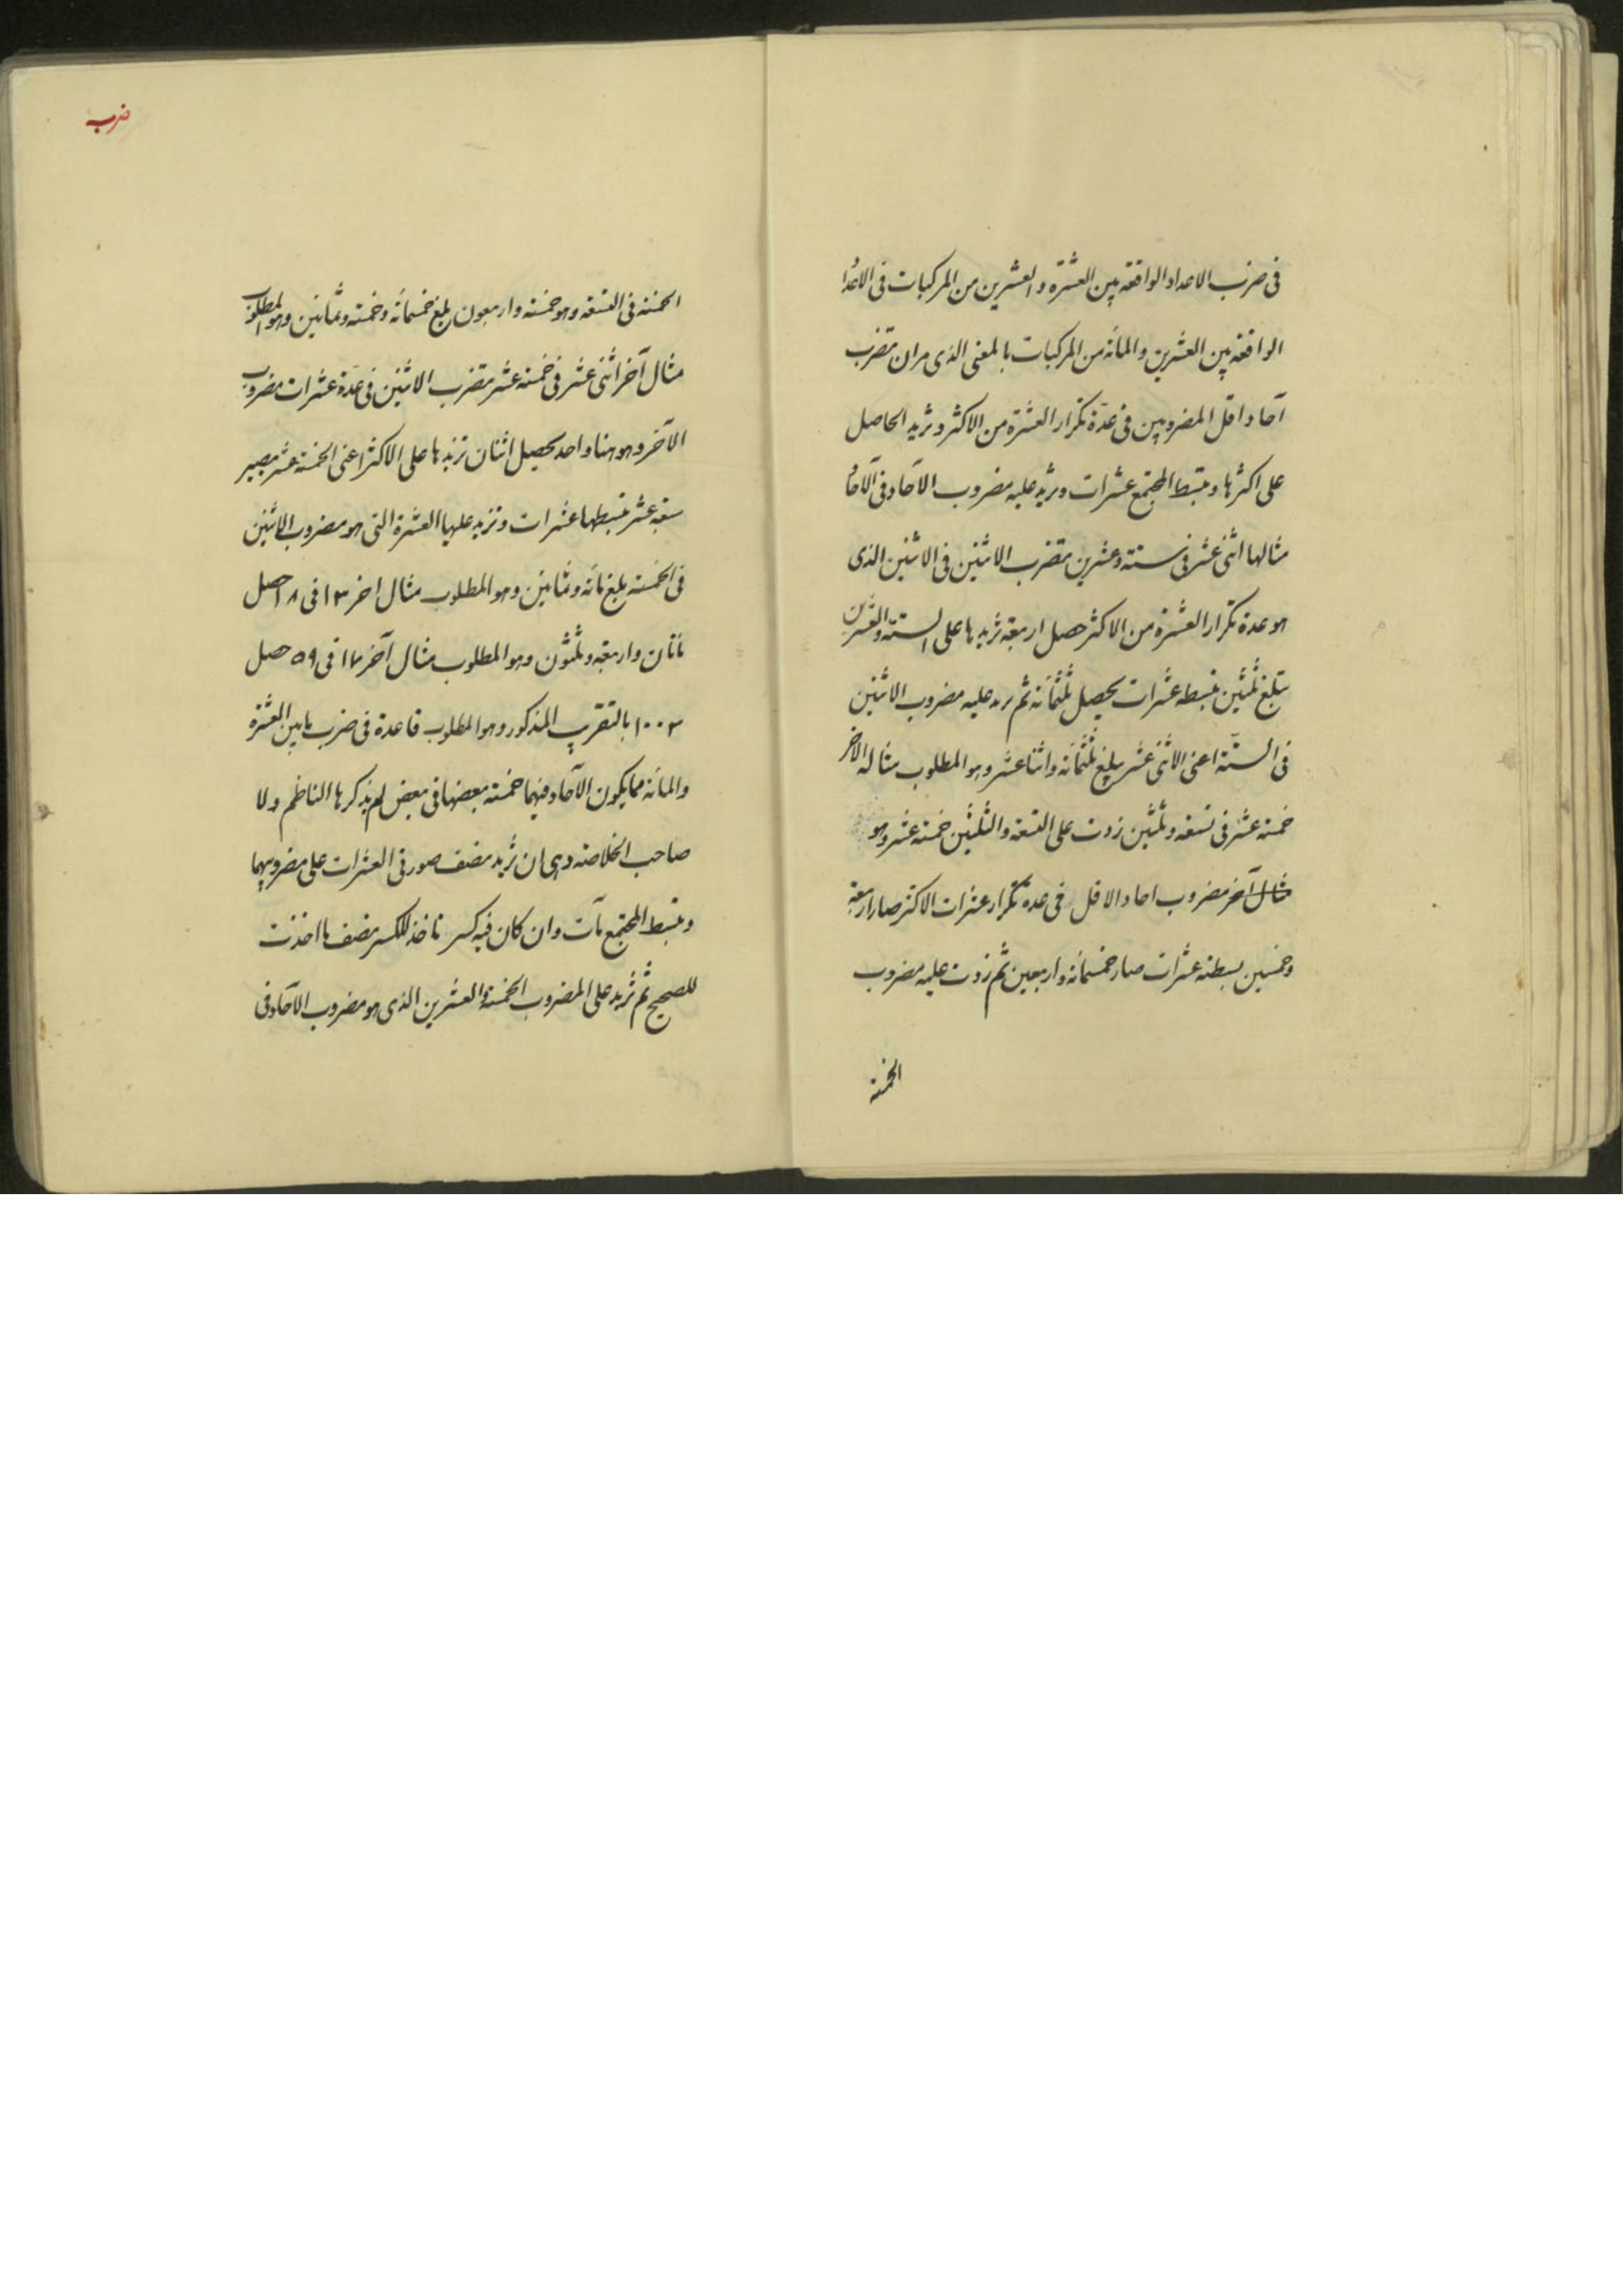 فى ضرب الاعداد الواقعة بين العشرة والعشرين من المركبات فى الاعداد
الواقعة بين العشرين والمائة من المركبات بالمعنى الذى مر ان تضرب
آحاد اقل المضروبين فى عدّة تكرار العشرة من الاكثر وتزيد الحاصل
على اكثرها وتبسط المجتمع عشرات وتزيد عليه مضروب الآحاد فى الآحاد
مثالها اثنى عشر فى ستة وعشرين تضرب الاثنين فى الاثنين الذى
هو عدة تكرار العشرة من الاكثر حصل اربعة تزيدها على الستة والعشرين
تبلغ ثلثين تبسطه عشرات يحصل ثلثمائة ثم تزيد عليه مضروب الاثنين
فى الستّة اعنى الاثنى عشر يبلغ ثلثمائة واثنا عشر وهو المطلوب مثاله الآخر
خمسة عشر فى تسعة وثلثين زدت على التسعة والثلثين خمسة عشر وهو
مثال آخر مضروب احاد الاقل فى عدة تكرار عشرات الاكثر صار اربعة
وخمسين بسطته عشرات صار خمسمائة واربعين ثم زدت عليه مضروب
الخمسة
ضرب
الخمسة فى التسعة وهو خمسة واربعون بلغ خمسمائة وخمسة وثمانين وهو المطلوب
مثال آخر اثنى عشر فى خمسة عشر تضرب الاثنين فى عدّة عشرات مضروب
الآخر وهو هنا واحد يحصل اثنان تزيدها على الاكثر اعنى الخمسة عشر يصير
سبعة عشر تبسطها عشرات وتزيد عليها العشرة التى هو مضروب الاثنين
فى الخمسة يبلغ مائة وثمانين وهو المطلوب مثال اخر ١٣ فى ١٨ حصل
مأتان واربعة وثلثون وهو المطلوب مثال آخر ١٧ فى ٥٩ حصل
١٠٠٣ بالتقريب المذكور وهو المطلوب قاعدة فى ضرب ما بين العشرة
والمائة مما يكون الآحاد فيهما خمسة بعضها فى بعض لم يذكرها الناظم ولا
صاحب الخلاصة وهى ان تزيد نصف صورتى العشرات على مضروبيهما
وتبسط المجتمع مآت وان كان فيه كسر تاخذ للكسر نصف ما اخذت
للصحيح ثم تزيد على المضروب الخمسة والعشرين الذى هو مضروب الآحاد فى